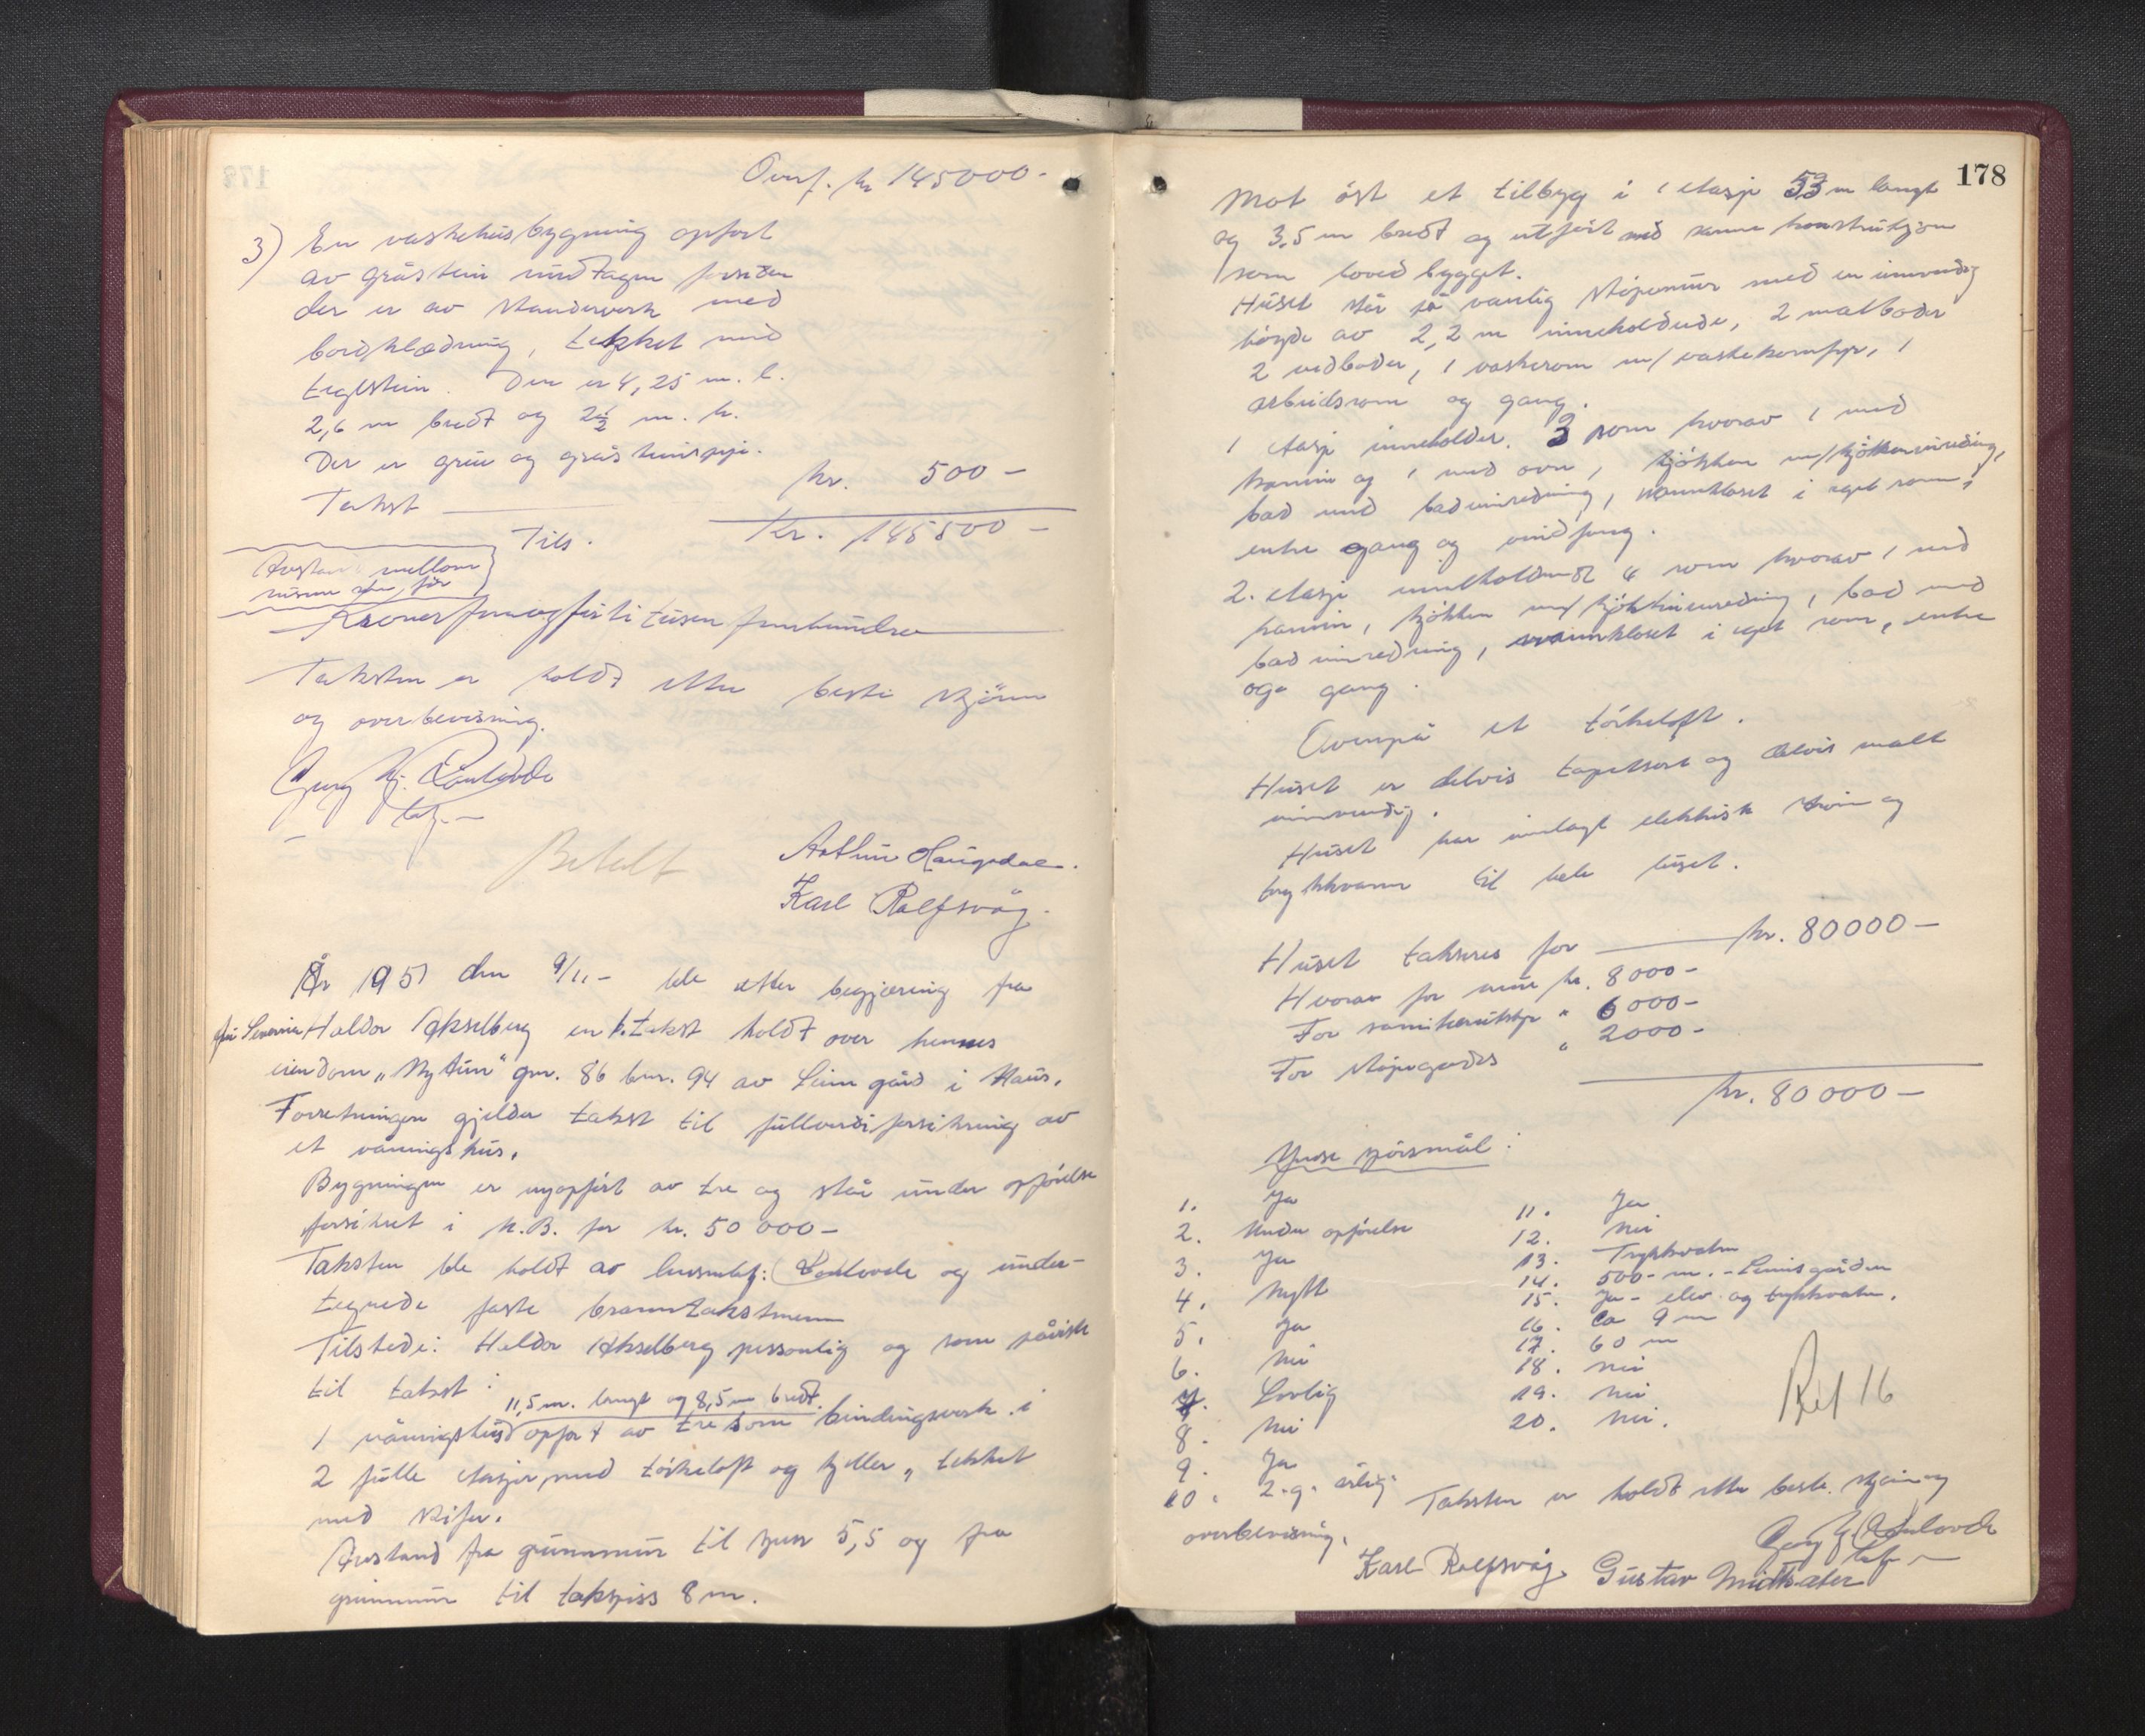 Overf. kr 145000.-
3) En vaskehusbygning opfört
av gråstein undtagen forsiden
der er av standerverk med
bordklædning, tekket med
teglstein. Den er 4,25 m. l.
2,6 m bredt og 2½ m. h.
Der er grue og gråsteinspipe.
Takst kr. 500 –
Tils. Kr. 145500 –
Avstand mellom
husene som før
Kroner
Taksten er holdt etter beste skjönn
og overbevisning.
Betalt
Arthur Haugsdal.
Karl Rolfsvåg.
År 1951 den 9/11 – ble etter begjæring fra
fru Severine Haldor Akselberg en b.takst holdt over hennes
eiendom „Nytun" gnr. 86 bnr. 94 av Leirn gård i Haus.
Forretningen gjelder takst til fullverdiforsikring av
et våningshus.
Bygningen er nyopfört av tre og står under opförelse
forsikret i N.B. for kr. 50 000 –
Taksten ble holdt av lensmbtj: og under-
tegnede faste branntakstmenn
Tilstede: Haldor Akselberg personlig og som påviste
til takst:
11,5 m. langt og 8,5 m bredt.
1 våningshus opfört av tre som bindingsverk i
2 fulle etasjer med törkeloft og kjeller, tekket
med skifer.
Avstand fra grunnmur til gesims 5,5 og fra
grunnmur til takspiss 8 m.
178
Mot öst et tilbyg i 1 etasje 53 m langt
og 3,5 m bredt og utfört med samme konstruksjon
som hovedbygget.
Huset står på vanlig stöpemur med en innvendig
höyde av 2,2 m inneholdende, 2 matboder
2 vedboder, 1 vaskerom m/ vaskekomfyr, 1
arbeidsrom og gang.
1 etasje inneholder. 3 rom hvorav 1 med
kamin og 1 med ovn, kjökken m/ kjökkeninnreding,
bad med badeinnredning, vannklosett i eget rom,
entre gang og vindfang.
2. etasje inneholdende 4 rom hvorav 1 med
kamin, kjökken m/ kjökkeninnreding, bad med
badeinnredning, vannklosett i eget rom, entre
og gang.
Ovenpå et törkeloft.
Huset er delvis tapetsert og delvis malt
innvendig.
Huset har innlagt elektrisk ström og
trykkvann til hele huset.
Huset takseres for kr. 80000 –
Hvorav for mur kr. 8000 –
For sanitærutstyr " 6000 –
For stöpegods " 2000 –
kr. 80000 –
Ymse spörsmål:
1. Ja
2. Under opförelse
3. Ja
4. Nytt
5. Ja
6. Nei
7. Lovlig
8. Nei
9. Ja
10. 2. g. årlig
11. Ja
12. Nei
13. Trykkvatn
14. 500 – m. – Leirnsgården
15. Ja – elev og trykkvatn.
16. Ca 9 m
17. 60 m
18. Nei
19. Nei
20. Nei.
Taksten er holdt etter beste skjönn og
overbevisning.
Karl Rolfsvåg. Gustav Midtsæter